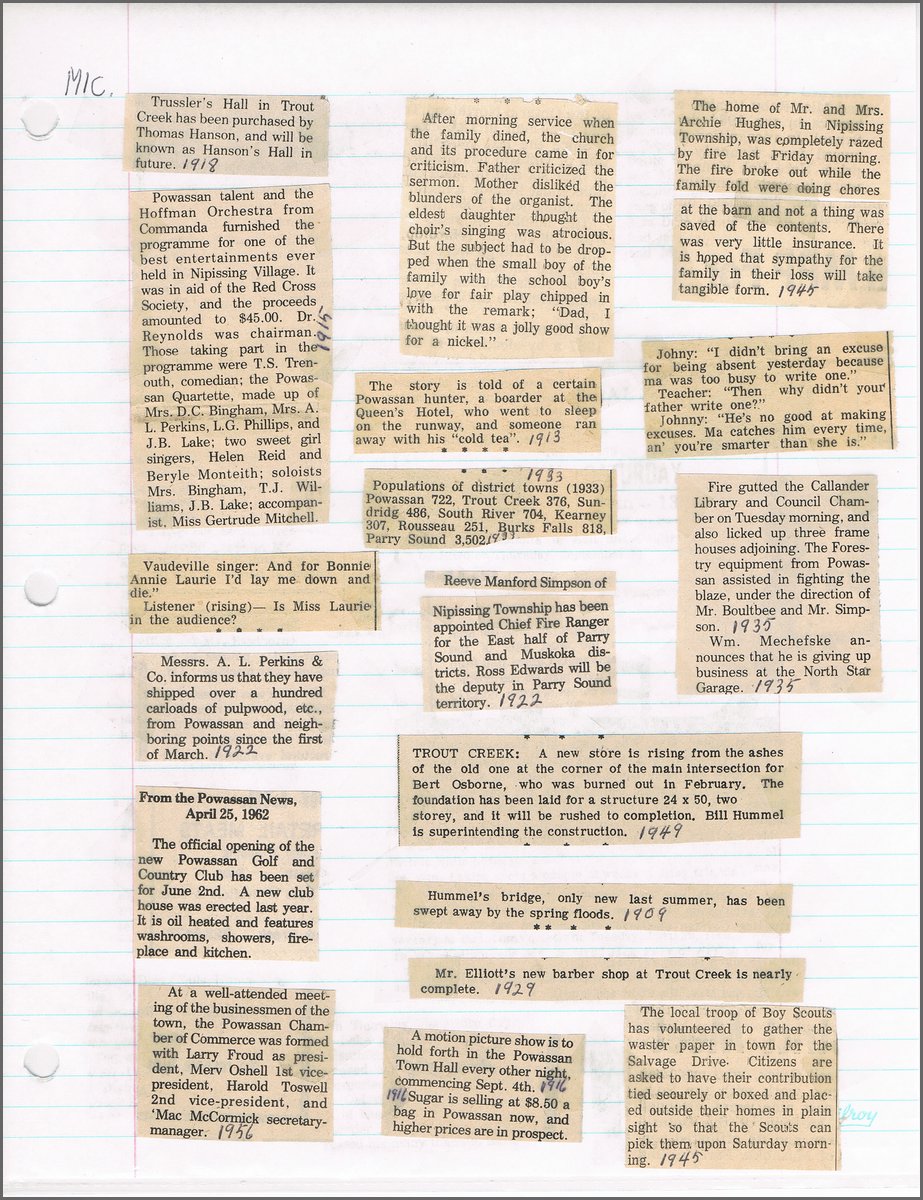 MIC.
Trussler's Hall in Trout
Creek has been purchased by
Thomas Hanson, and will be
known as Hanson's Hall in
future. 1918
Powassan talent and the
Hoffman Orchestra from
Commanda furnished the
programme for one of the
best entertainments ever
held in Nipissing Village. It
was in aid of the Red Cross
Society, and the proceeds
amounted to $45.00. Dr.
Reynolds was chairman.
Those taking part in the
programme were T.S. Tren-
outh, comedian; the Powas-
san Quartette, made up of
Mrs. D.C. Bingham, Mrs. A.
L. Perkins, L.G. Phillips, and
J.B. Lake; two sweet girl
singers, Helen Reid and
Beryle Monteith; soloists
Mrs. Bingham, T.J. Wil-
liams, J.B. Lake; accompan-
ist, Miss Gertrude Mitchell.
1915
Vaudeville singer: And for Bonnie
Annie Laurie I'd lay me down and
die."
Listener (rising)— Is Miss Laurie
in the audience?
* * * *
Messrs. A. L. Perkins &
Co. informs us that they have
shipped over a hundred
carloads of pulpwood, etc.,
from Powassan and neigh-
boring points since the first
of March. 1922
From the Powassan News,
April 25, 1962
The official opening of the
new Powassan Golf and
Country Club has been set
for June 2nd. A new club
house was erected last year.
It is oil heated and features
washrooms, showers, fire-
place and kitchen.
At a well-attended meet-
ing of the businessmen of the
town, the Powassan Cham-
ber of Commerce was formed
with Larry Froud as presi-
dent, Merv Oshell 1st vice-
president, Harold Toswell
2nd vice-president, and
Mac McCormick secretary-
manager. 1956
* * *
After morning service when
the family dined, the church
and its procedure came in for
criticism. Father criticized the
sermon. Mother disliked the
blunders of the organist. The
eldest daughter thought the
choir's singing was atrocious.
But the subject had to be drop-
ped when the small boy of the
family with the school boy's
love for fair play chipped in
with the remark; "Dad, I
thought it was a jolly good show
for a nickel."
The story is told of a certain
Powassan hunter, a boarder at the
Queen's Hotel, who went to sleep
on the runway, and someone ran
away with his "cold tea". 1913
* * * *
* * * 1933
Populations of district towns (1933)
Powassan 722, Trout Creek 376, Sun-
dridg 486, South River 704, Kearney
307, Rousseau 251, Burks Falls 818,
Parry Sound 3,502 1933
Reeve Manford Simpson of
Nipissing Township has been
appointed Chief Fire Ranger
for the East half of Parry
Sound and Muskoka dis-
tricts. Ross Edwards will be
the deputy in Parry Sound
territory. 1922
* * *
TROUT CREEK: A new store is rising from the ashes
of the old one at the corner of the main intersection for
Bert Osborne, who was burned out in February. The
foundation has been laid for a structure 24 x 50, two
storey, and it will be rushed to completion. Bill Hummel
is superintending the construction. 1949
Hummel's bridge, only new last summer, has been
swept away by the spring floods. 1909
** * *
Mr. Elliott's new barber shop at Trout Creek is nearly
complete. 1929
A motion picture show is to
hold forth in the Powassan
Town Hall every other night,
commencing Sept. 4th. 1916
1916 Sugar is selling at $8.50 a
bag in Powassan now, and
higher prices are in prospect.
The home of Mr. and Mrs.
Archie Hughes, in Nipissing
Township, was completely razed
by fire last Friday morning.
The fire broke out while the
family fold were doing chores
at the barn and not a thing was
saved of the contents. There
was very little insurance. It
is hoped that sympathy for the
family in their loss will take
tangible form. 1945
Johny: "I didn't bring an excuse
for being absent yesterday because
ma was too busy to write one."
Teacher: "Then why didn't your
father write one?"
Johnny: "He's no good at making
excuses. Ma catches him every time,
an' you're smarter than she is."
Fire gutted the Callander
Library and Council Cham-
ber on Tuesday morning, and
also licked up three frame
houses adjoining. The Fores-
try equipment from Powas-
san assisted in fighting the
blaze, under the direction of
Mr. Boultbee and Mr. Simp-
son. 1935
Wm. Mechefske an-
nounces that he is giving up
business at the North Star
Garage. 1935
The local troop of Boy Scouts
has volunteered to gather the
waster paper in town for the
Salvage Drive. Citizens are
asked to have their contribution
tied securely or boxed and plac-
ed outside their homes in plain
sight so that the Scouts can
pick them upon Saturday morn-
ing. 1945